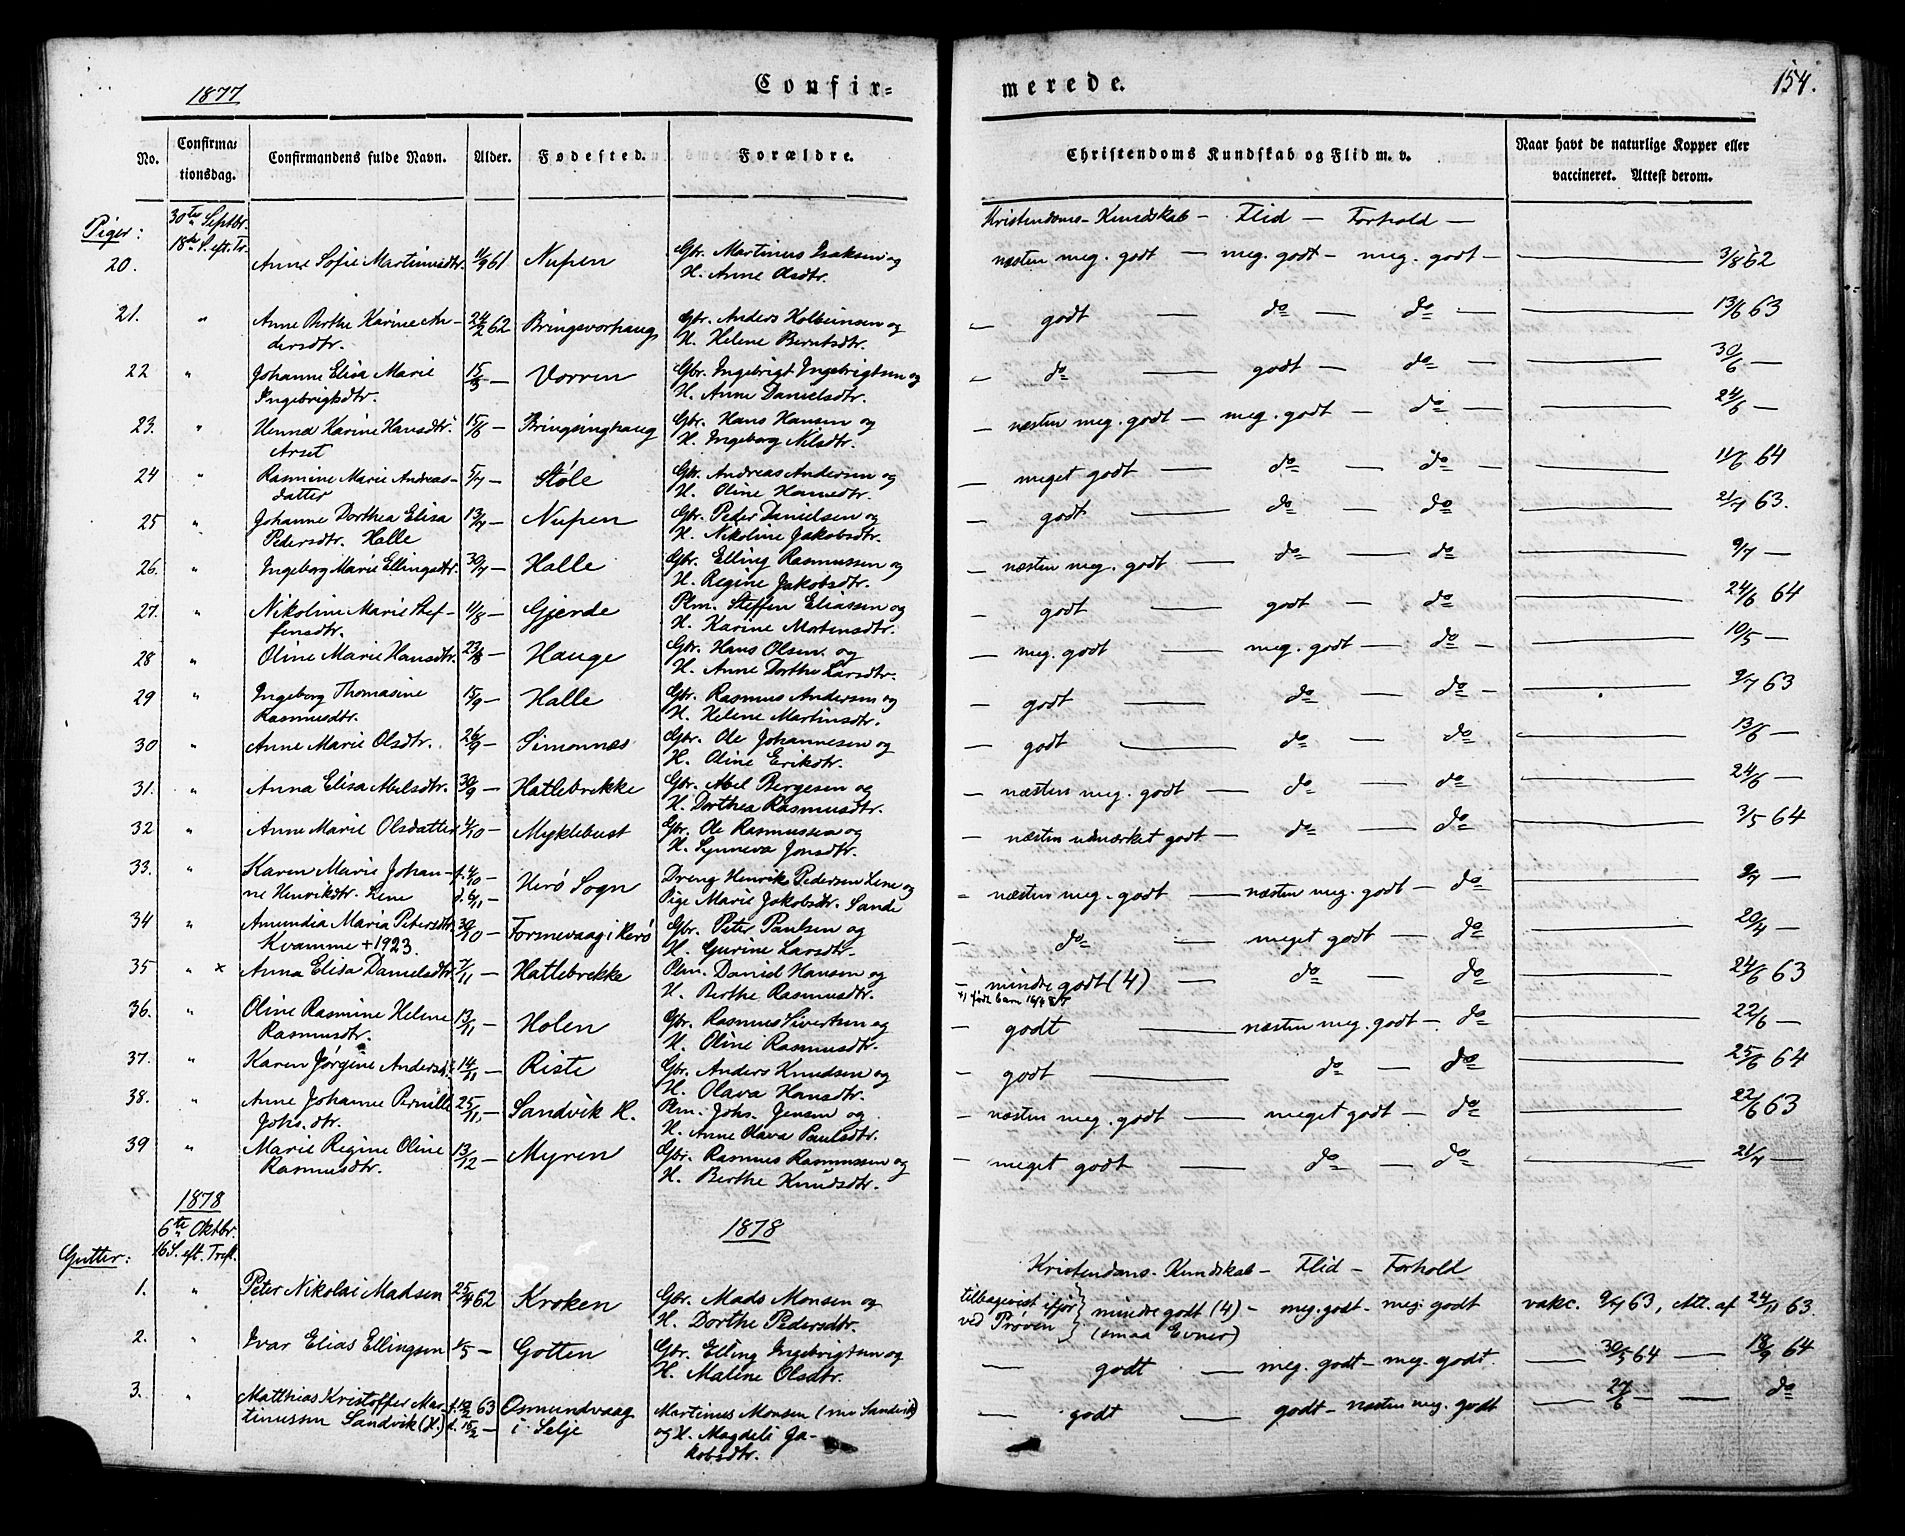 1877
Confir-
merede.
154.
No.
Confirma-
tionsdag.
Confirmandens fulde Navn.
Alder.
Fødested.
Forældre.
Christendoms Kundskab og Flid m. v.
Naar havt de naturlige Kopper eller
vaccineret. Attest derom.
Piger:
30te Septbr.
18de S. eft. Tr.
Kristendoms-Kundskab - Flid - Forhold -
20. Anne Sofie Martinusdtr. 11/9 61 Nupen Gbr. Martinus Isaksen og
H. Anne Olsdtr.
næsten meg. godt - meg. godt - meg. godt - 3/8 62
21. " Anne Birthe Karine An- 24/2 62 Bringsvorhaug Gbr. Anders Kolbeinsen og
dersdtr. H. Helene Berntsdtr.
- godt - do - do - 13/6 63
22 " Johanne Elisa Marie 15/5 - Vorren Gbr. Ingebrigt Ingebrigtsen og
Ingebrigtsdtr. H. Anne Danielsdtr.
- do - godt - do - 30/6 -
23. " Henna Karine Hansdtr. 15/6 - Bringsinghaug Gbr. Hans Hansen og
Arset H. Ingeborg Nilsdtr.
- næsten meg. godt - meg. godt - do - 24/6 -
24 " Rasmine Marie Andreas- 5/7 - Støle Gbr. Andreas Andersen og
datter H. Oline Hansdtr.
- meget godt - do - do - 11/6 64
25 " Johanne Dorthea Elisa 13/7 - Nupen Gbr. Peder Danielsen og
Pedersdtr. Halle H. Nikoline Jakobsdtr.
- godt - do - do - 21/7 63.
26. " Ingeborg Marie Ellingsdtr. 30/7 - Halle Gbr. Elling Rasmussen og
H. Regine Jakobsdtr.
- næsten meg. godt - do - do - 9/7 -
27. " Nikoline Marie Stef- 11/8 - Gjerde Plm. Steffen Eliassen og
fensdtr. H. Karine Mortensdtr.
- godt - godt - do - 24/6 64
28 " Oline Marie Hansdtr. 23/8 - Hauge Gbr. Hans Olsen og
H. Anne Dorthe Larsdtr.
- meg. godt - meg. godt - do - 10/5 -
29 " Ingeborg Thomasine 15/9 - Halle Gbr. Rasmus Andersen og
Rasmusdtr. H. Helene Martinsdtr.
- godt - do - do - 9/7 63
30 " Anne Marie Olsdtr. 26/9 - Simonnæs Gbr. Ole Johannesen og
H. Oline Eriksdtr.
- godt - do - do - 13/6 -
31. " Anna Elisa Abelsdtr. 30/9 - Hatlebrekke Gbr. Abel Bergesen og
H. Dorthea Rasmusdtr.
- næsten meg. godt - do - do - 24/6 -
32 " Anne Marie Olsdatter 4/10 - Myklebust Gbr. Ole Rasmussen og
H. Synneva Jonsdtr.
- næsten udmærket godt - do - do - 3/5 64
33. " Karen Marie Johan- f. 4/10 - Herö Sogn Dreng Henrik Pedersen Lene og
ne Henriksdtr. Lene d. 6/11 - Pige Marie Jakobsdtr. Sande
- næsten meg. godt - næsten meg. godt - do - 9/7 -
34 " Amundia Maria Petersdtr. 30/10 - Formevaag i Herö Gbr. Peter Paulsen og
Kvamme + 1923. H. Gurine Larsdtr.
- do - meget godt - do - 20/4 -
35 " x Anna Elisa Danielsdtr. 7/11 - Hatlebrekke Plm. Daniel Hansen og
H. Berthe Rasmusdtr.
- mindre godt (4) - do - do - 24/6 63
36. " Oline Rasmine Helene 13/11 - Holen Gbr. Rasmus Sivertsen og
Rasmusdtr. H. Oline Rasmusdtr.
- godt - næsten meg. godt - do - 22/6 -
37. " Karen Jørgine Andersd. 14/11 - Riste Gbr. Anders Knudsen og
H. Olava Hansdtr.
- godt - do - do - 25/6 64
38. " Anne Johanne Pernille 25/11 - Sandvik H. Plm. Johs. Jensen og
Johs. dtr. H. Anne Olava Paulsdtr.
- næsten meg. godt - meget godt - do - 22/6 63
39 " Marie Regine Oline 13/12 - Myren Gbr. Rasmus Rasmussen og
Rasmusdtr. H. Berthe Knudsdtr.
- meget godt - do - do - 21/7 -
1878
6te Oktbr.
16 S. eft. Tref.
1878
Gutter:
Kristendoms-Kundskab - Flid - Forhold
1. " Peter Nikolai Madsen 25/4 62 Kroken Gbr. Mads Monsen og
H. Dorthe Pedersdtr.
tilbagevist ifjor
ved Prøven
mindre godt (4) - meg. godt - meg. godt vakc. 9/7 63, Att. af 24/11 63.
(smaa Evner)
2. " Ivar Elias Ellingsen 1/5 - Gotten Gbr. Elling Ingebrigtsen og
H. Maline Olsdtr.
- godt - meg. godt - meg. godt. - 30/5 64 - 18/9 64
3. " Matthias Kristoffer Mar- f. 12/2 63 Osmundvaag Martinus Monsen (nu Sandvik)
tinussen Sandvik (H.) d. 15/2 - i Selje og H. Magdeli Ja-
kobsdtr.
- godt - godt - næsten meg. godt - 27/6 - do